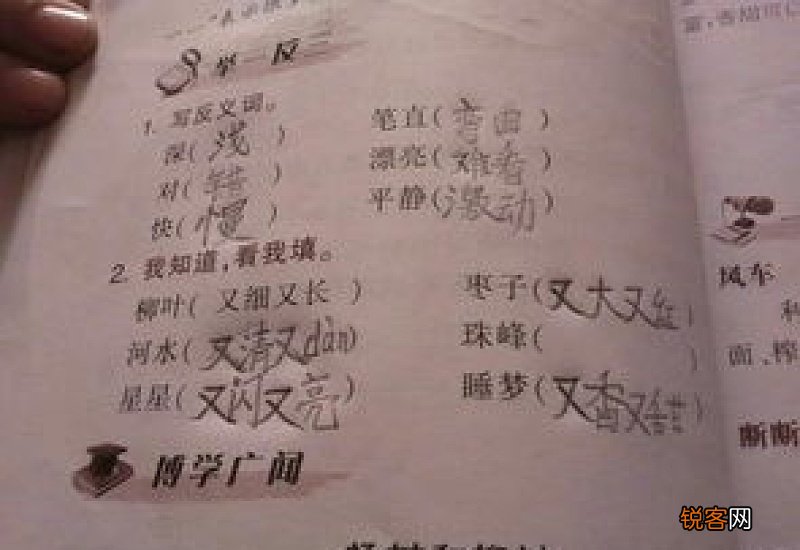 举一反三
1. 写反义词。
深(浅) 笔直(弯曲)
对(错) 漂亮(难看)
快(慢) 平静(激动)
2. 我知道，看我填。
柳叶(又细又长) 枣子(又大又红)
河水(又清又dàn) 珠峰( )
星星(又闪又亮) 睡梦(又香又甜)
博学广闻
风车
面、榨
渐渐
锐客网